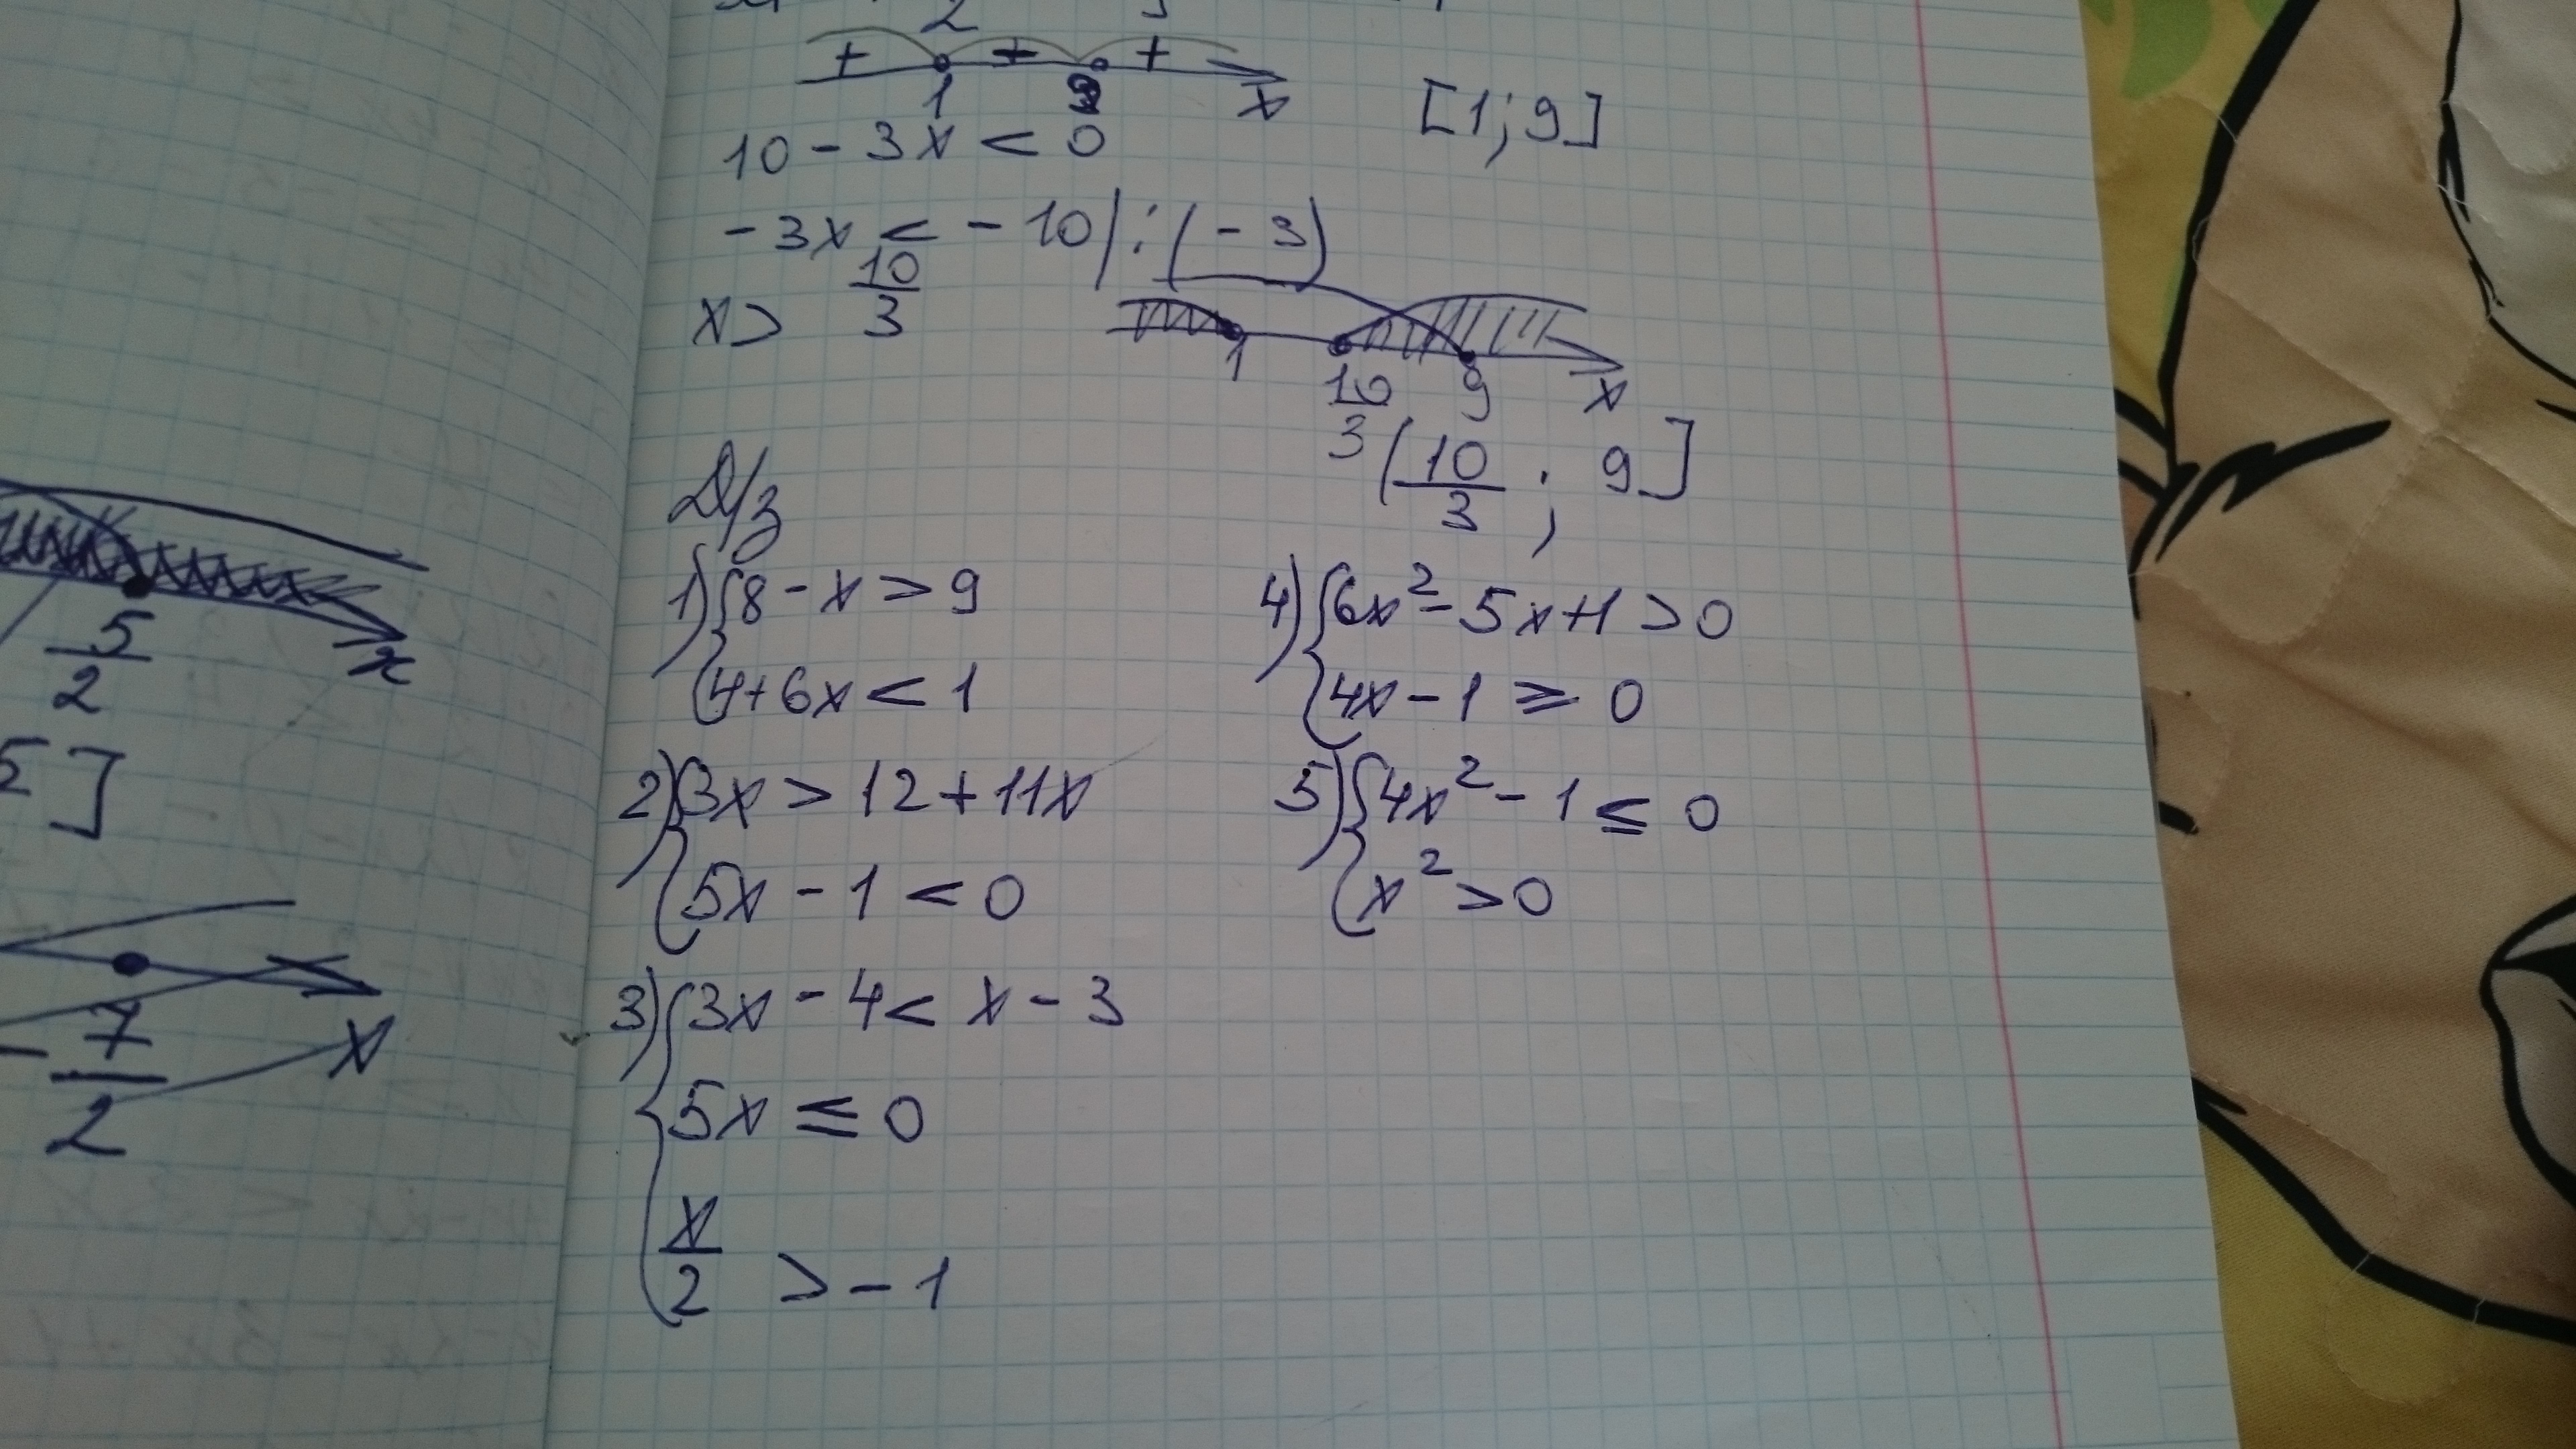 + + +
1 9 x
[1;9]
10 - 3x < 0
-3x < -10 | : (-3)
x > 10/3
1 10/3 9 x
(10/3 ; 9]
Д/з
1) { 8 - x > 9
4 + 6x < 1
2) { 3x > 12 + 11x
5x - 1 < 0
3) { 3x - 4 < x - 3
5x ≤ 0
x/2 > -1
4) { 6x² - 5x + 1 > 0
4x - 1 ≥ 0
5) { 4x² - 1 ≤ 0
x² > 0
5/2 x
5]
-7/2 x